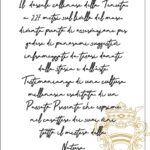 Il dossale collinare della Tenuta
a 227 metri sul livello del mare
diventa punto di osservazione per
godere di panorami suggestivi
infrangendo da tesori donati
dalla storia e dalle arti
Testimonianza di una cultura
millenaria ereditata di un
Passato Presente che esprime
nel carattere dei suoi vini
tutto il mistero della
Natura.